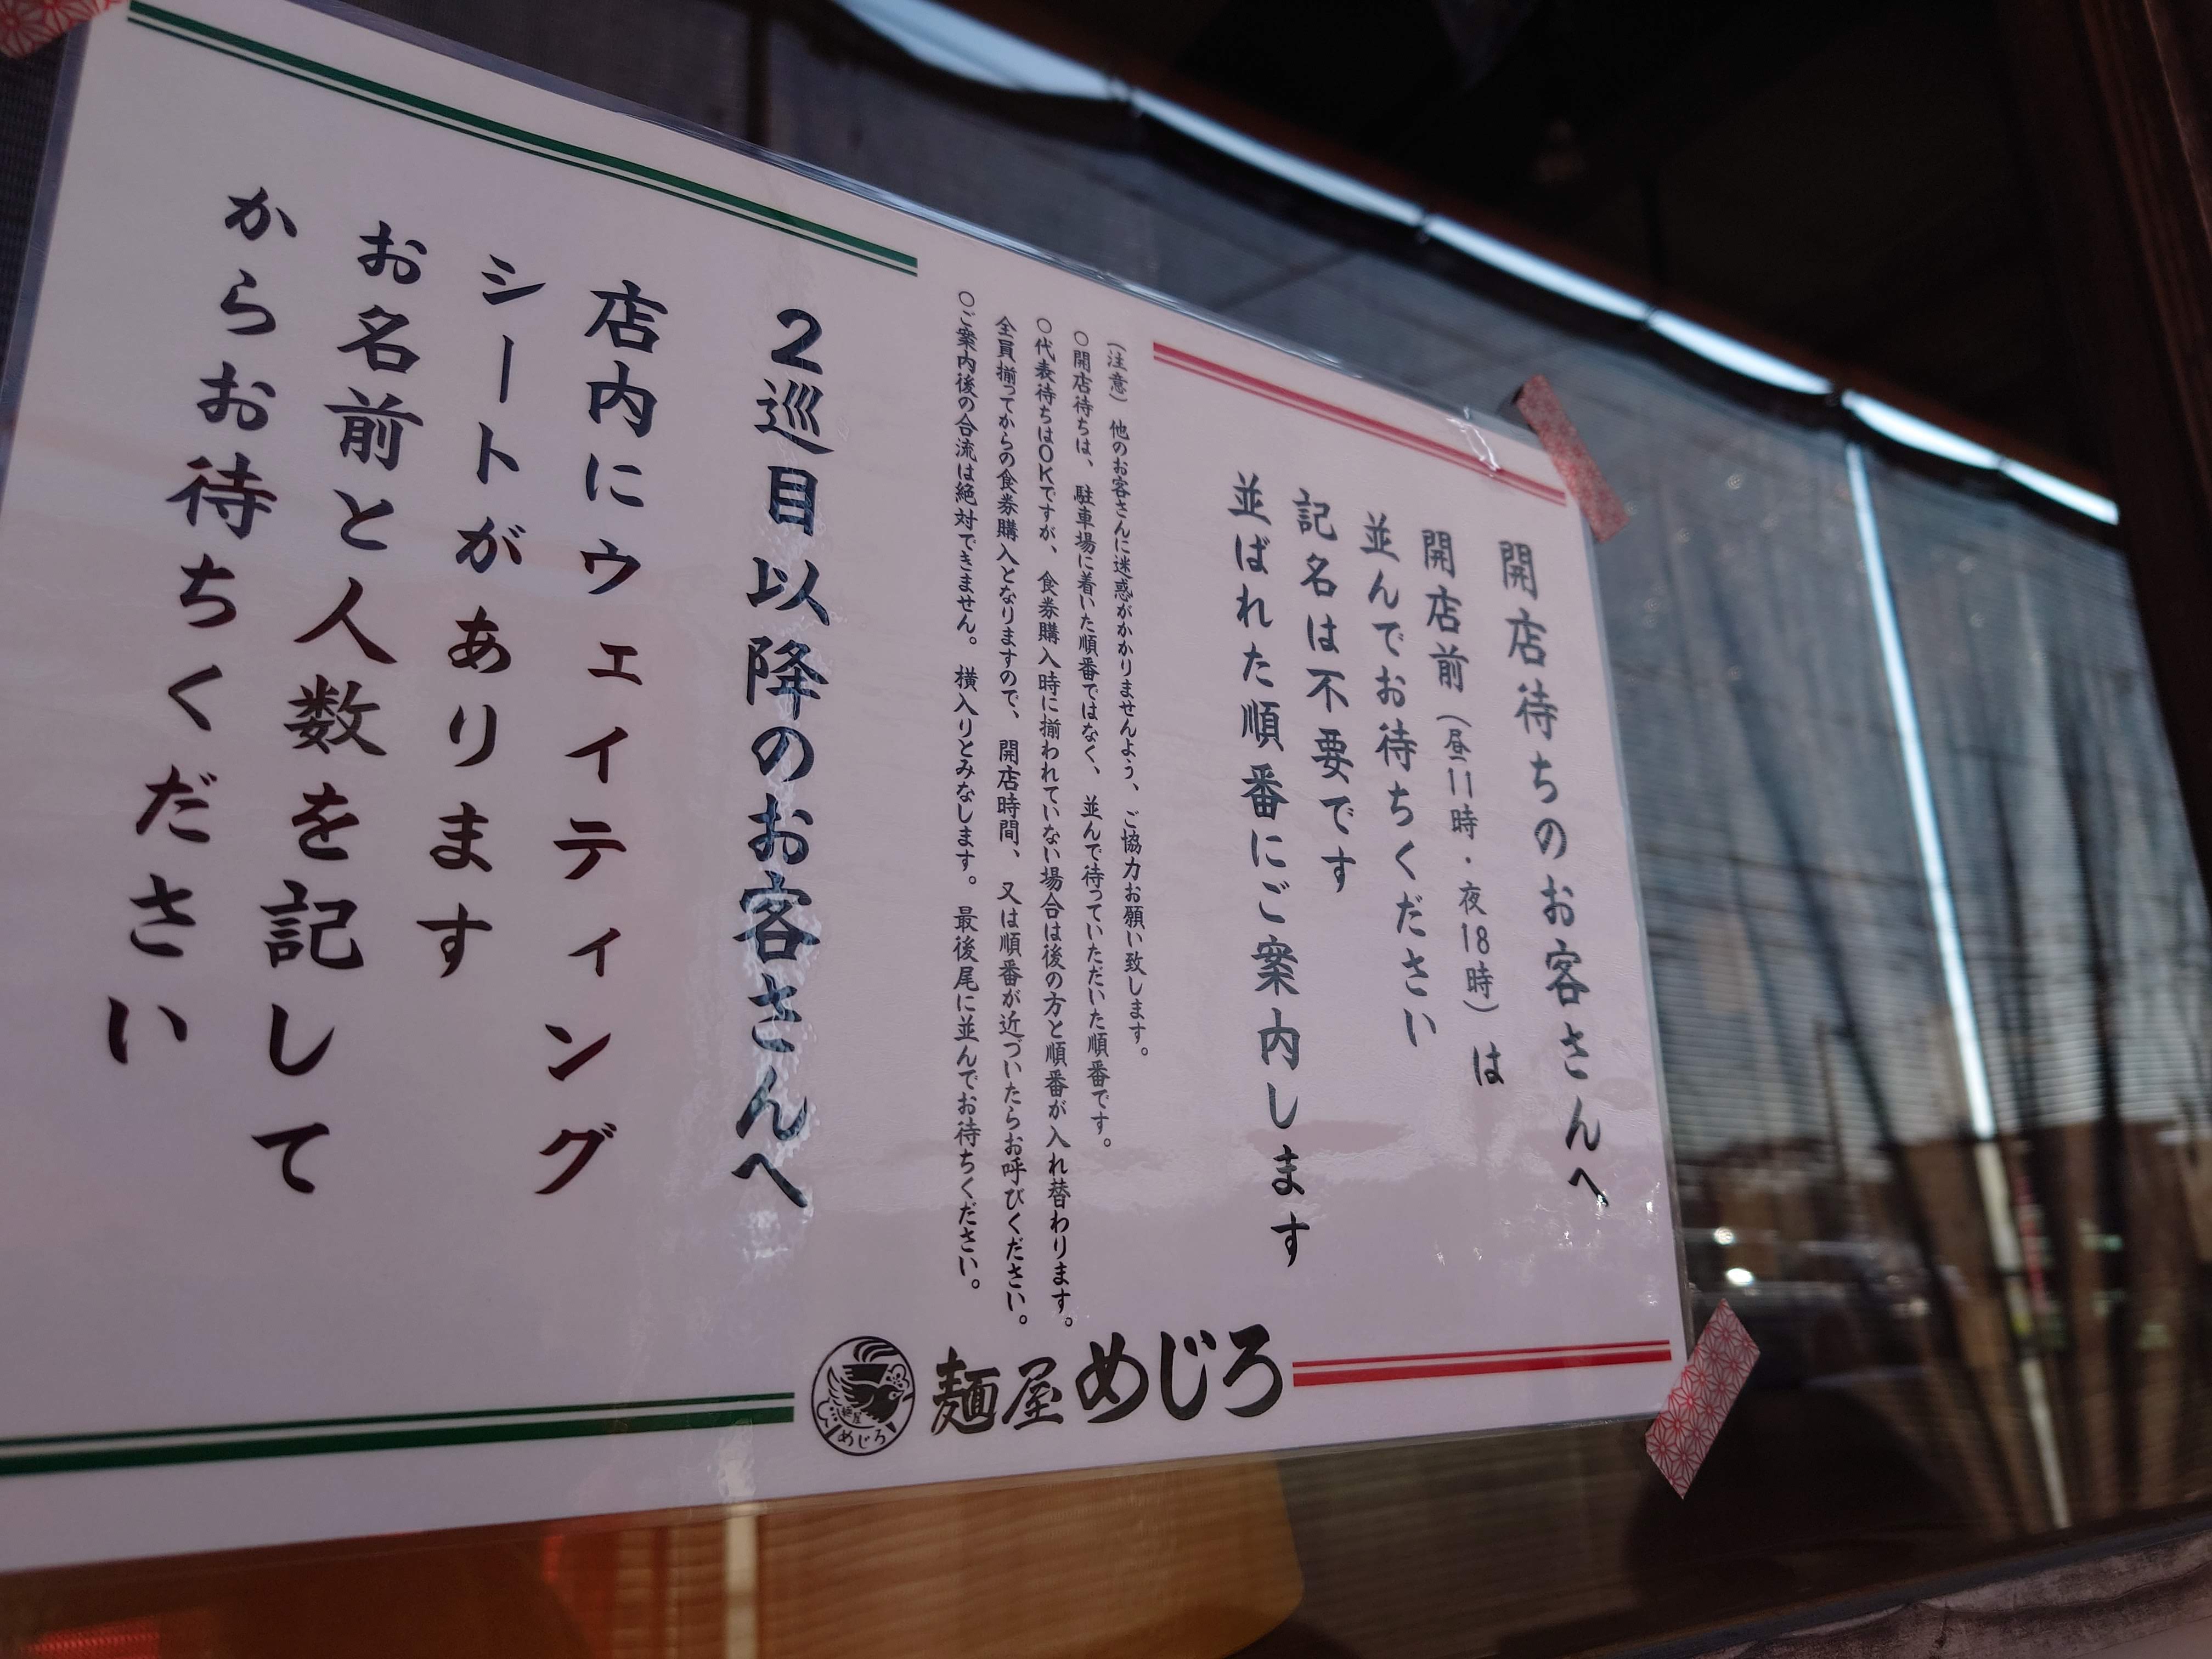 開店待ちのお客さんへ
開店前（昼11時・夜18時）は
並んでお待ちください
記名は不要です
並ばれた順番にご案内します
（注意）他のお客さんに迷惑がかかりませんよう、ご協力お願い致します。
○開店待ちは、駐車場に着いた順番ではなく、並んで待っていただいた順番です。
○代表待ちはOKですが、食券購入時に揃われていない場合は後の方と順番が入れ替わります。
全員揃ってからの食券購入となりますので、開店時間、又は順番が近づいたらお呼びください。
○ご案内後の合流は絶対できません。横入りとみなします。最後尾に並んでお待ちください。
2巡目以降のお客さんへ
店内にウェイティング
シートがあります
お名前と人数を記して
からお待ちください
麺屋めじろ
麺屋
めじろ